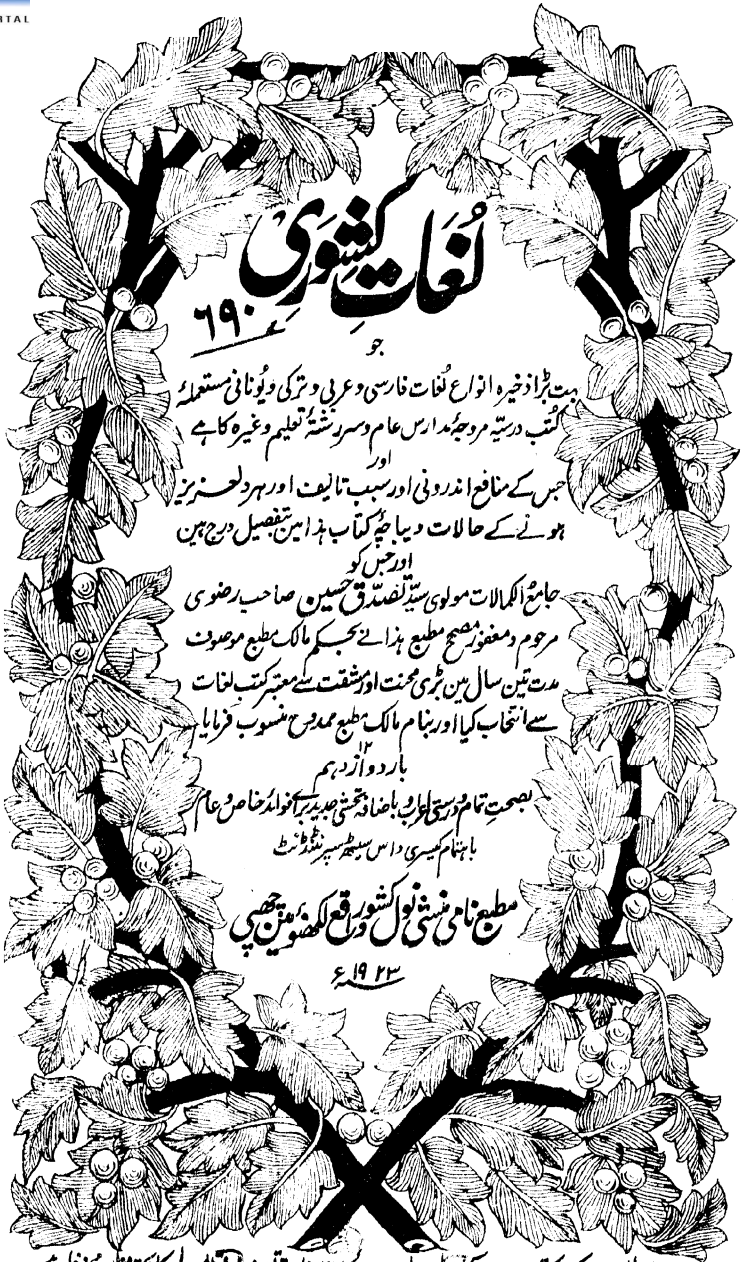 RTAL
لُغَات کِشوَرِی
۶۹۰
جو
بہت بڑا ذخیرہ انواع لُغات فارسی و عربی و ترکی و یُونانی مستعملۂ
کُتب درسیّہ مروجۂ مدارس عام و سررشتۂ تعلیم وغیرہ کا ہے
اور
جس کے منافع اندرونی اور سبب تالیف اور ہردلعزیز
ہونے کے حالات دیباچۂ کتاب ہذا مین بتفصیل درج ہین
اور جس کو
جامع الکمالات مولوی سیّد تصدّق حسین صاحب رضوی
مرحوم و مغفور مصحح مطبع ہذا نے بحکم مالک مطبع موصوف
مدت تین سال مین بڑی محنت اور مشقت سے معتبر کتب لغات
سے انتخاب کیا اور بنام مالک مطبع ممدوح منسوب فرمایا
۱۲
بار دوازدہم
بصحتِ تمام و درستی اعراب و باضافہ تحشی جدید برائے فوائد خاص و عام
باہتمام کیسری داس سیٹھ سپرنٹنڈنٹ
مطبع نامی منشی نول کشور واقع لکھنؤ مین چھپی
۱۹۲۳ء